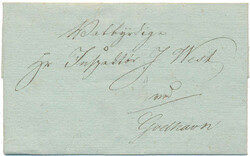 Velbyrdige
Hr Inspektör J West
ved
Godhavn